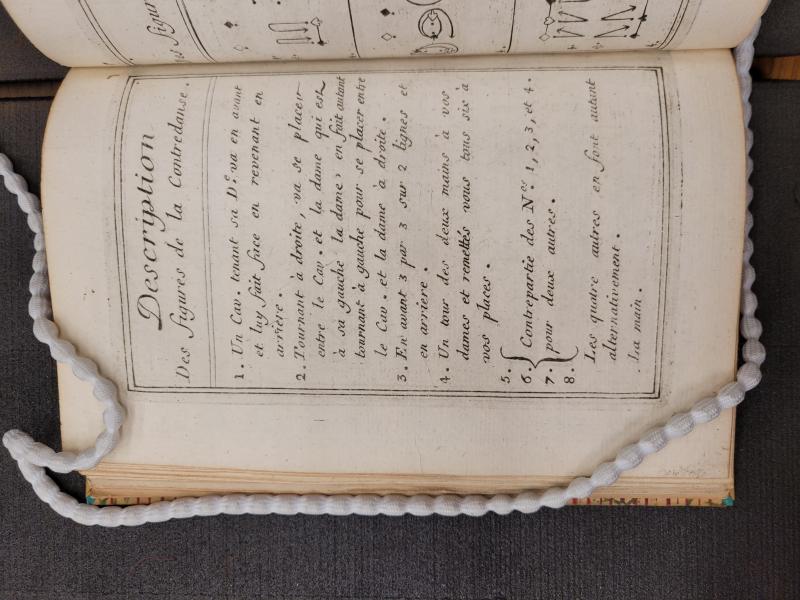 Description
Des figures de la Contredanse.
1. Un Cav. tenant sa De. va en avant
et luy fait face en revenant en
arriere.
2. Tournant à droite, va se placer
entre le Cav. et la dame qui est
à sa gauche la dame, en fait autant
tournant à gauche pour se placer entre
le Cav. et la dame à droite.
3. En avant 3 par 3 sur 2 lignes et
en arriere.
4. Un tour des deux mains à vos
dames et remettés vous tous six à
vos places.
5.
6. Contrepartie des Nos. 1, 2, 3, et 4.
7. pour deux autres.
8.
Les quatre autres en font autant
alternativement.
La main.